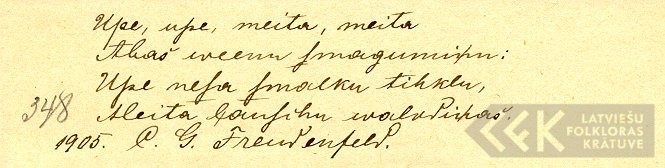 Upe, upe, meita, meita
Abas weenu smagumiņu:
Upe nesa smalku tihklu,
348
Meita ļauschu walodiņas.
1905. C. G. Freudenfeld.
LATVIEŠU
FOLKLORAS
KRATUVE